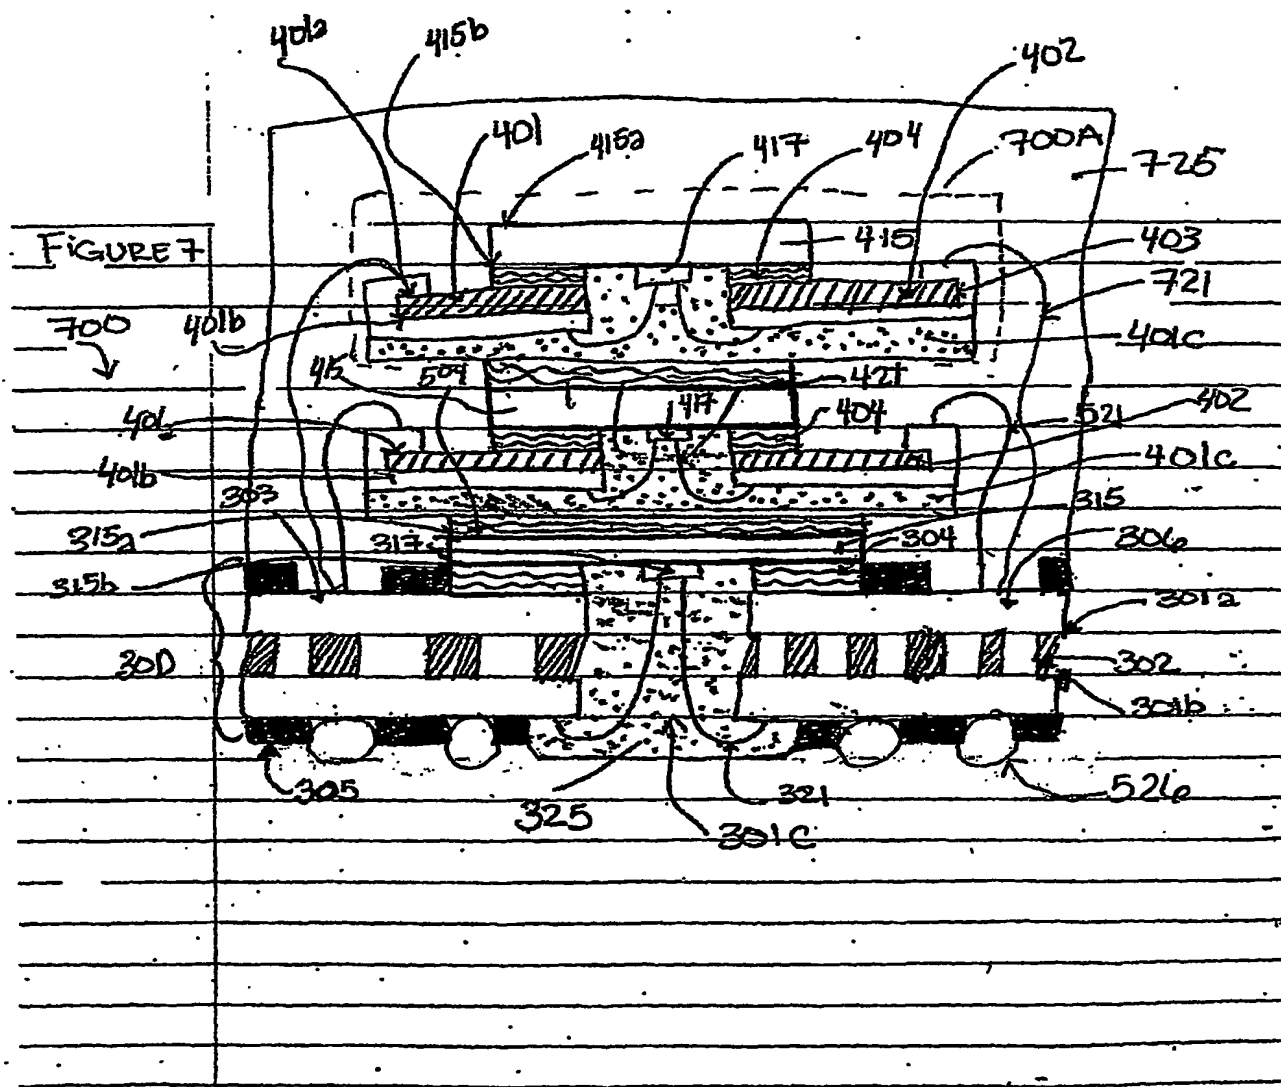 401a 415b 402
401 415a 417 404 700A
725
FIGURE 7 415 403
700 401b 721
401c
415 504 421
401 417 404 402
401b 521 401c
303 315
315a 317 304 306
315b 301a
300 302
301b
305 325 321 526
301C